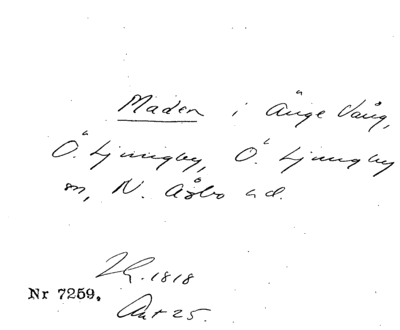 Maden i Änge Vång,
Ö. Ljungby, Ö. Ljungby
sn, N. Åsbo hd.
1818
Nr 7259.
Akt 25.